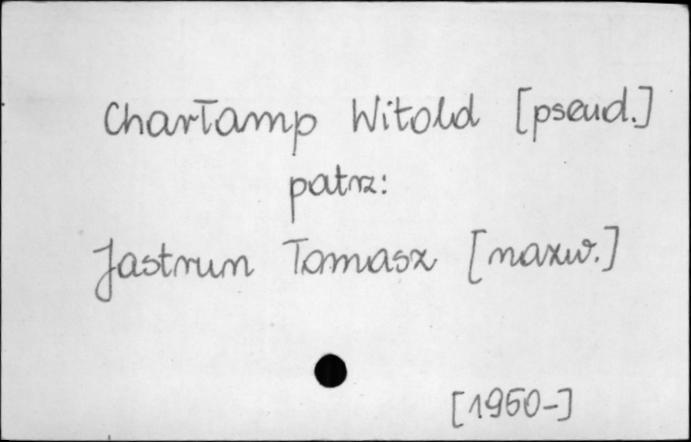 Charłamp Witold [pseud.]
patrz:
Jastrun Tomasz [nazw.]
[1950-]